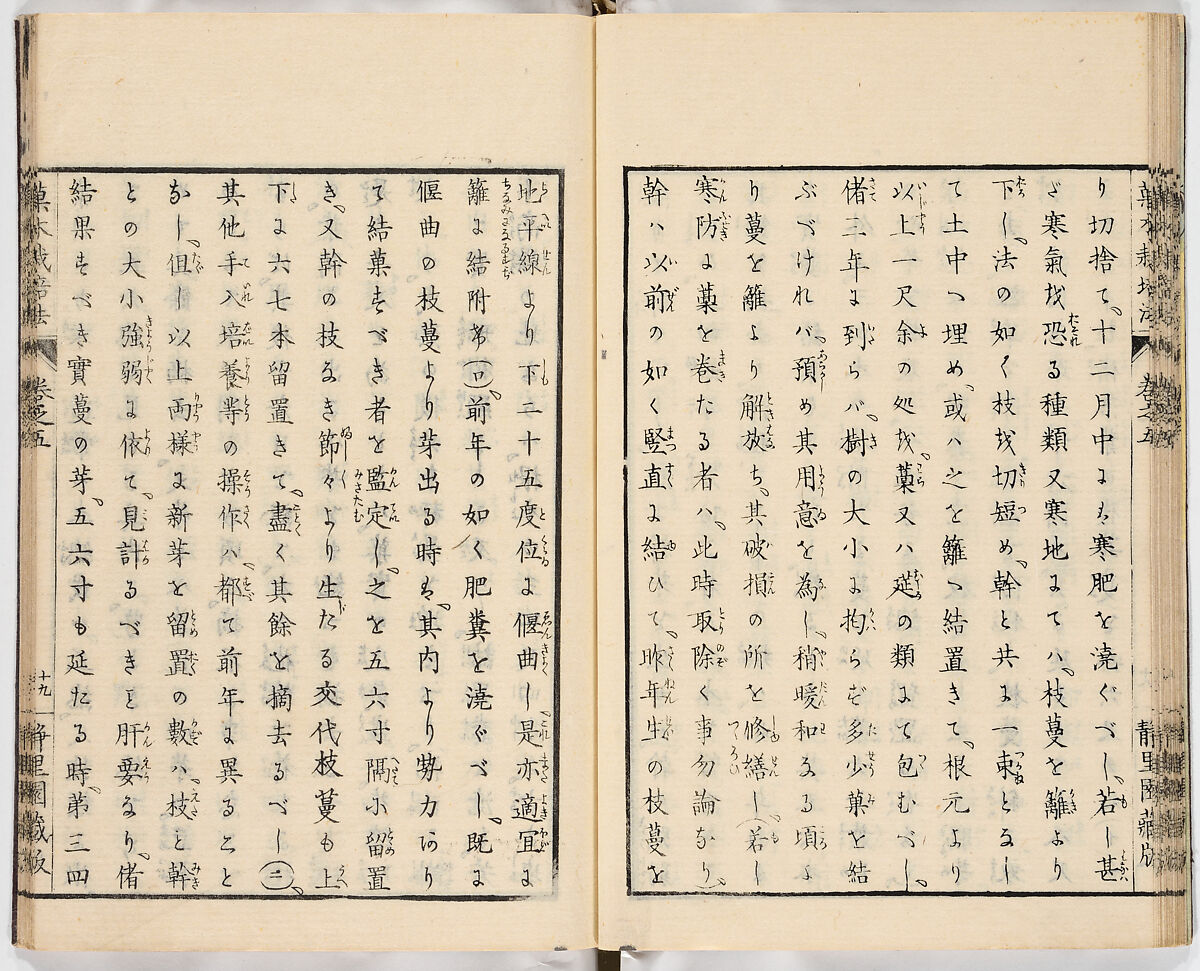 り切捨て、十二月中ニハ寒肥を澆ぐべし、若し甚
だ寒氣を恐る種類又寒地にてハ、枝蔓を籬より
下し、法の如く枝を切短め、幹と共に一束となし
て土中へ埋め、或ハ之を籬へ結置きて、根元より
以上一尺余の処を、藁又ハ莚の類にて包むべし、
偖三年に到らバ、樹の大小に拘らず多少菓を結
ぶべけれバ、預め其用意を為し、稍暖和なる頃よ
り蔓を籬より解放ち、其破損の所を修繕し（若し
寒防に藁を巻たる者ハ、此時取除く事勿論なり）、
幹ハ以前の如く竪直に結ひて、昨年生の枝蔓を
地平線より下二十五度位に偃曲し、是亦適宜に
籬に結附希（口）、前年の如く肥糞を澆ぐべし、既に
偃曲の枝蔓より芽出る時ハ、其内より勢力あり
て結菓すべき者を監定し、之を五六寸隔に留置
き、又幹の枝なき節々より生たる交代枝蔓も上
下に六七本留置きて、盡く其餘を摘去るべし（二）、
其他手入培養等の操作ハ、都て前年に異ること
なし、但し以上両様に新芽を留置の數ハ、枝と幹
との大小強弱に依て、見計るべきを肝要なり、偖
結果すべき實蔓の芽、五六寸も延たる時、第三四
菓木栽培法
巻之五
十九
静里園藏版